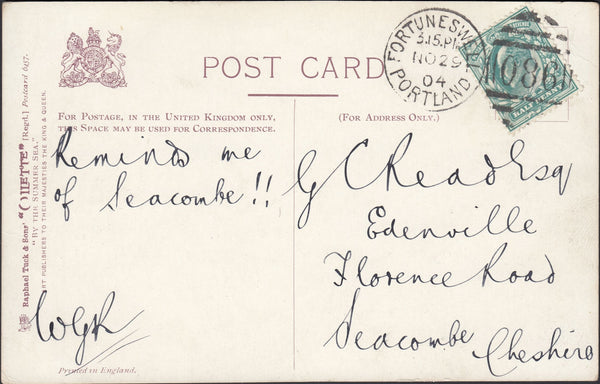 POST CARD
FOR POSTAGE, IN THE UNITED KINGDOM ONLY,
THIS SPACE MAY BE USED FOR CORRESPONDENCE.
(FOR ADDRESS ONLY.)
FORTUNESWELL
3.15.PM
NO 29
04
PORTLAND
HALFPENNY
Reminds me
of Seacombe!!
WGR
G C Read Esq
Edenville
Florence Road
Seacombe
Cheshire
Raphael Tuck & Sons' "OILETTE" [Regd.] Postcard 6457.
"BY THE SUMMER SEA."
ART PUBLISHERS TO THEIR MAJESTIES THE KING & QUEEN.
Printed in England.